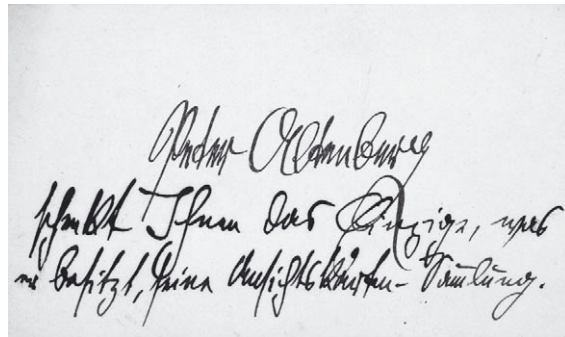 Peter Altenberg
schenkt Ihnen das Einzige, was
er besitzt, seine Ansichtskarten-Samlung.